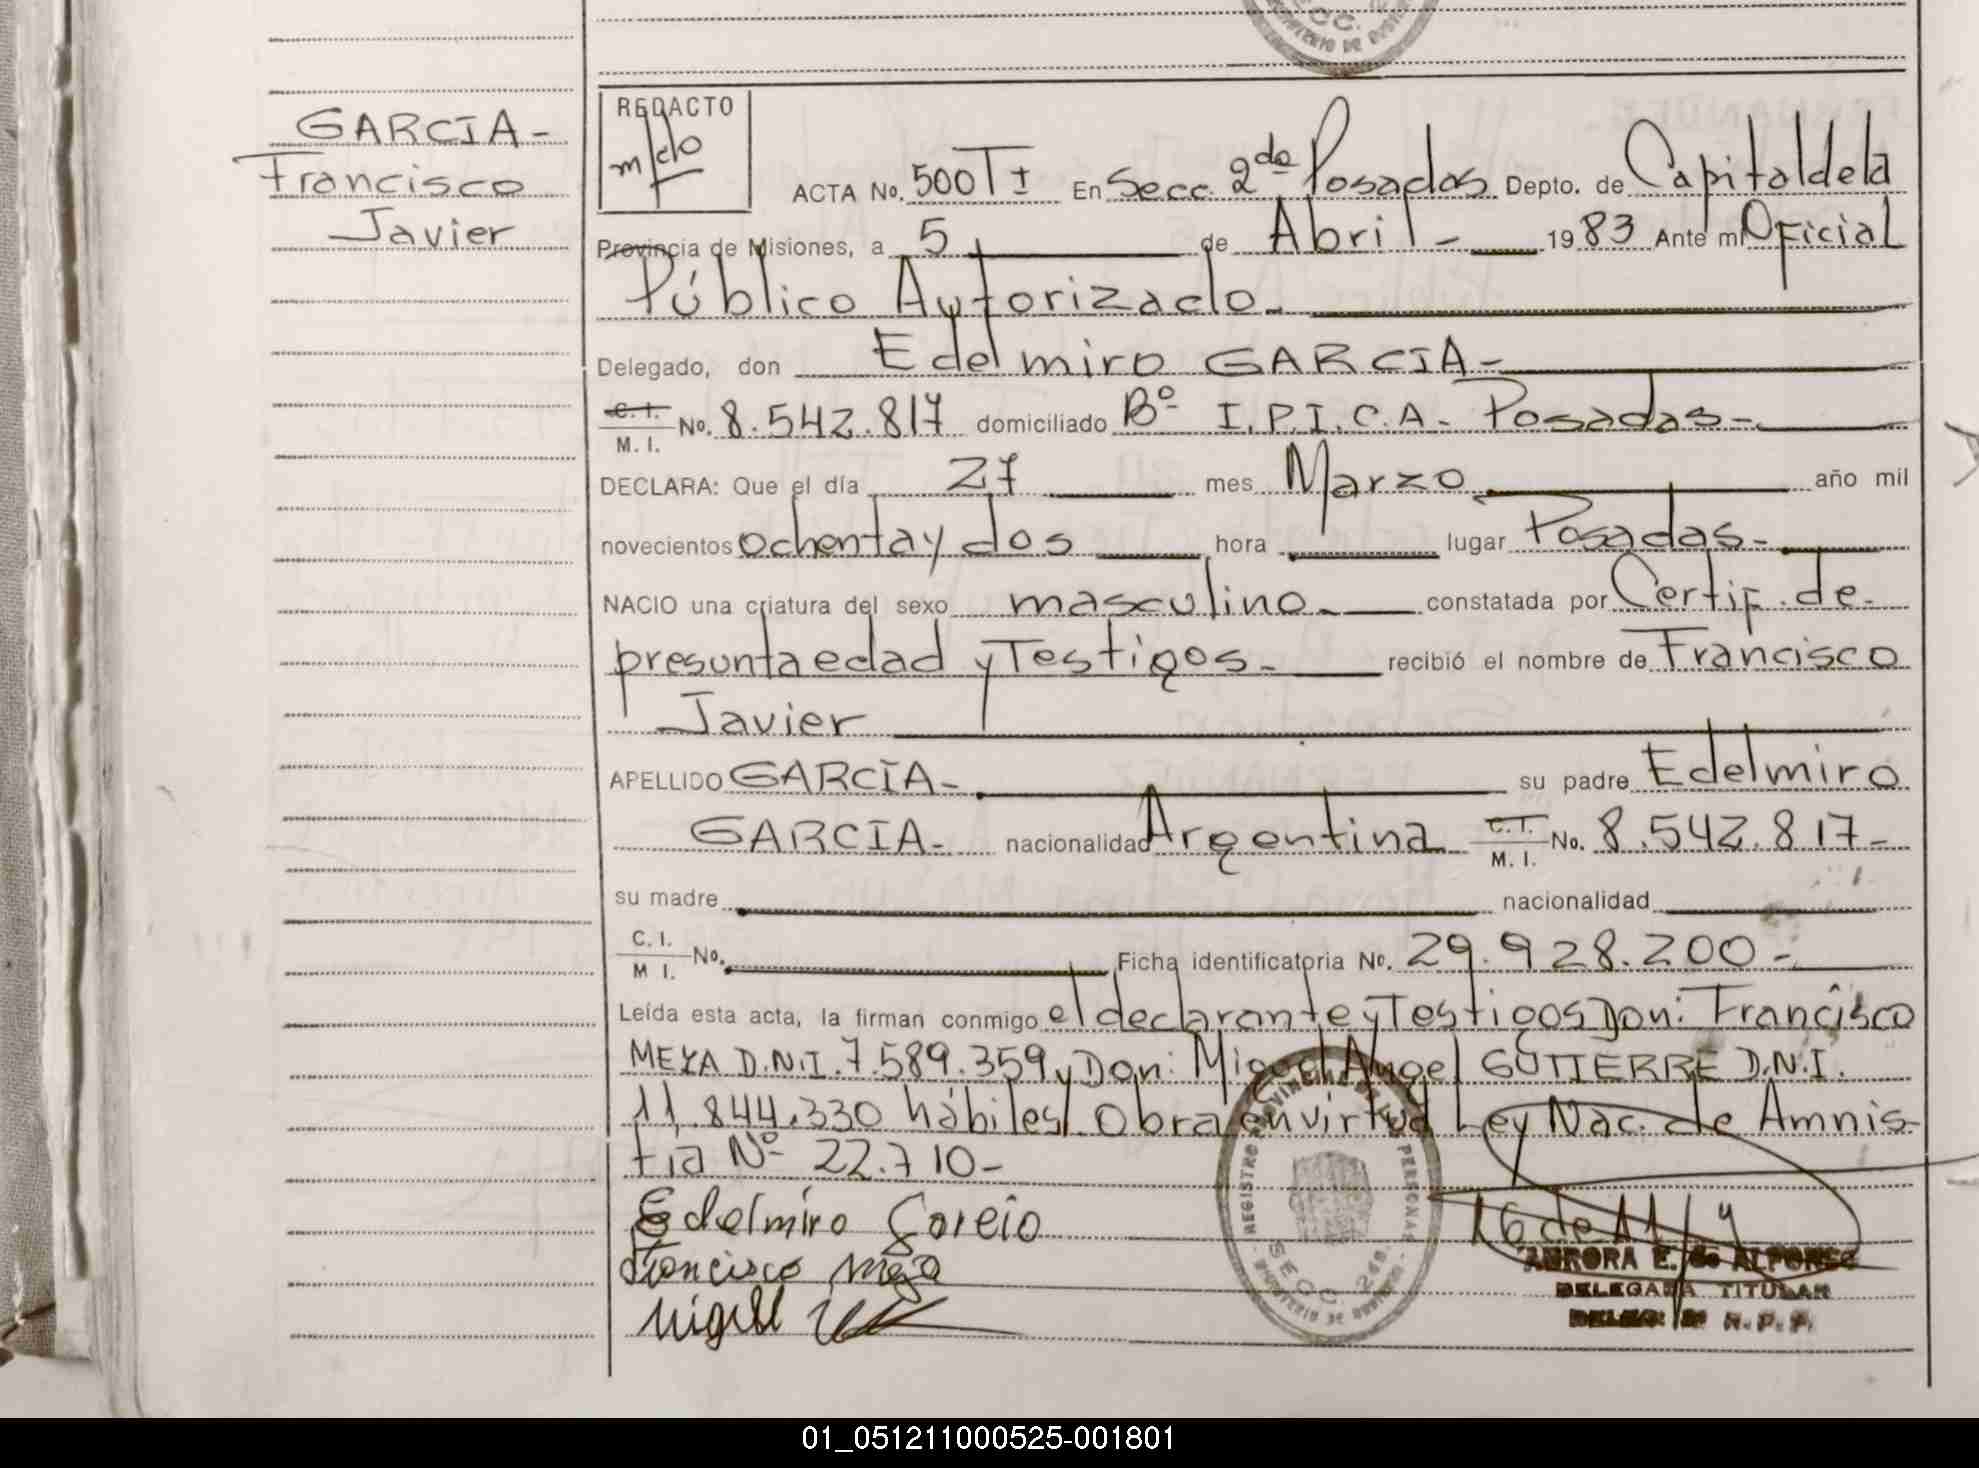 GARCIA-
Francisco
Javier
REDACTO
ACTA No. 500 TI En Secc. 2da Posadas Depto. de Capital de la
Provincia de Misiones, a 5 de Abril - 1983 Ante mi Oficial
Público Autorizado-
Delegado, don Edelmiro GARCIA-
C.I. M.I. No. 8.542.817 domiciliado Bº I.P.I.C.A- Posadas-
DECLARA: Que el día 27 mes Marzo año mil
novecientos ochenta y dos hora lugar Posadas-
NACIO una criatura del sexo masculino- constatada por Certif. de
presunta edad y Testigos- recibió el nombre de Francisco
Javier
APELLIDO GARCIA- su padre Edelmiro
GARCIA- nacionalidad Argentina C.I. M.I. No. 8.542.817-
su madre nacionalidad
C.I. M I. No. Ficha identificatoria No. 29.928.200-
Leída esta acta, la firman conmigo el declarante y Testigos Don: Francisco
MEZA D.N.I. 7.589.359 y Don: Miguel Angel GUTIERRE D.N.I.
11.844.330 hábiles/ Obra en virtud Ley Nac. de Amnis-
tia Nº 22.710-
Edelmiro Gareia
Francisco Meza
Miguel
16 de 11/4
AURORA E. de ALFONSO
DELEGADA TITULAR
R.P.P.
REGISTRO PROVINCIAL PERSONAS
SECC. 2da.
MINISTERIO DE GOBIERNO
01_051211000525-001801